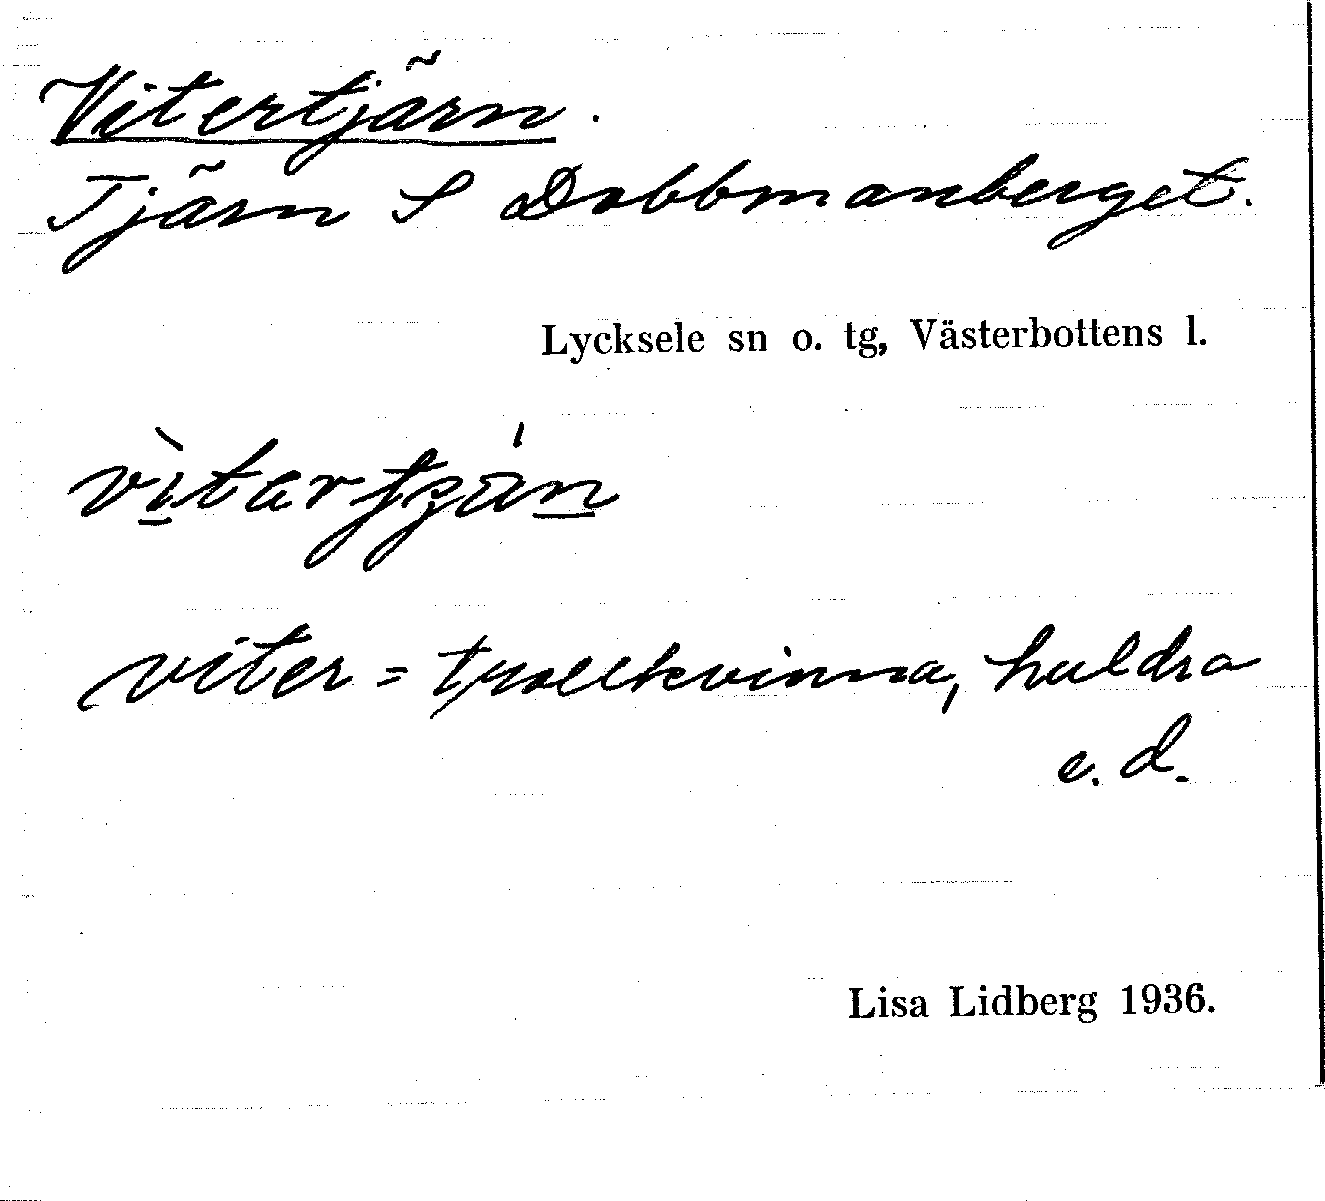 Vitertjärn.
Tjärn S Dobbmanberget.
Lycksele sn o. tg, Västerbottens l.
viter = trollkvinna, huldra
e. d.
Lisa Lidberg 1936.